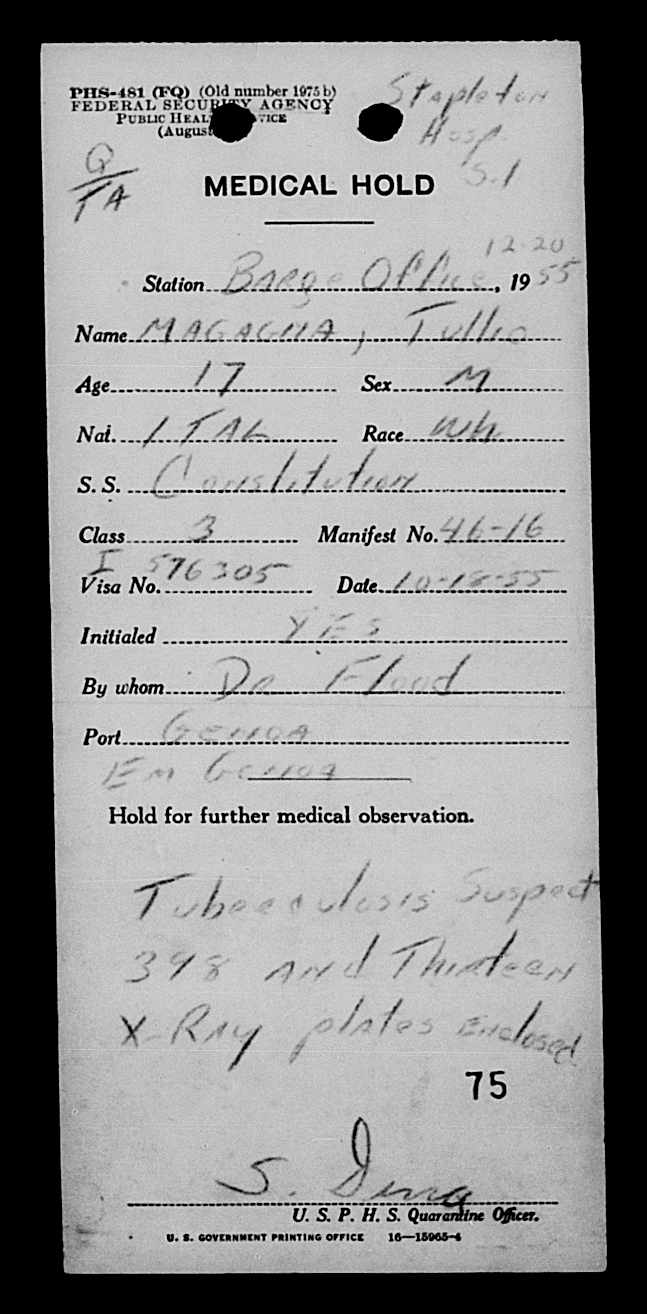 PHS-481 (FQ) (Old number 1975b)
FEDERAL SECURITY AGENCY
PUBLIC HEAL VICE
(August
Stapleton
Hosp.
S.I
Q
TA
MEDICAL HOLD
12-20
Station Barge Office, 1955
Name MAGAGNA, Tullio
Age 17 Sex M
Nat. ITAL Race Wh
S. S. Constitution
Class 3 Manifest No. 46-16
Visa No. I 576305 Date 10-18-55
Initialed YES
By whom DR Flood
Port GENOA
Em Genoa
Hold for further medical observation.
Tubeeculosis Suspect
398 ANd Thirteen
X-RAy plates Enclosed
75
S.
U. S. P. H. S. Quarantine Officer.
U. S. GOVERNMENT PRINTING OFFICE 16—15965-4